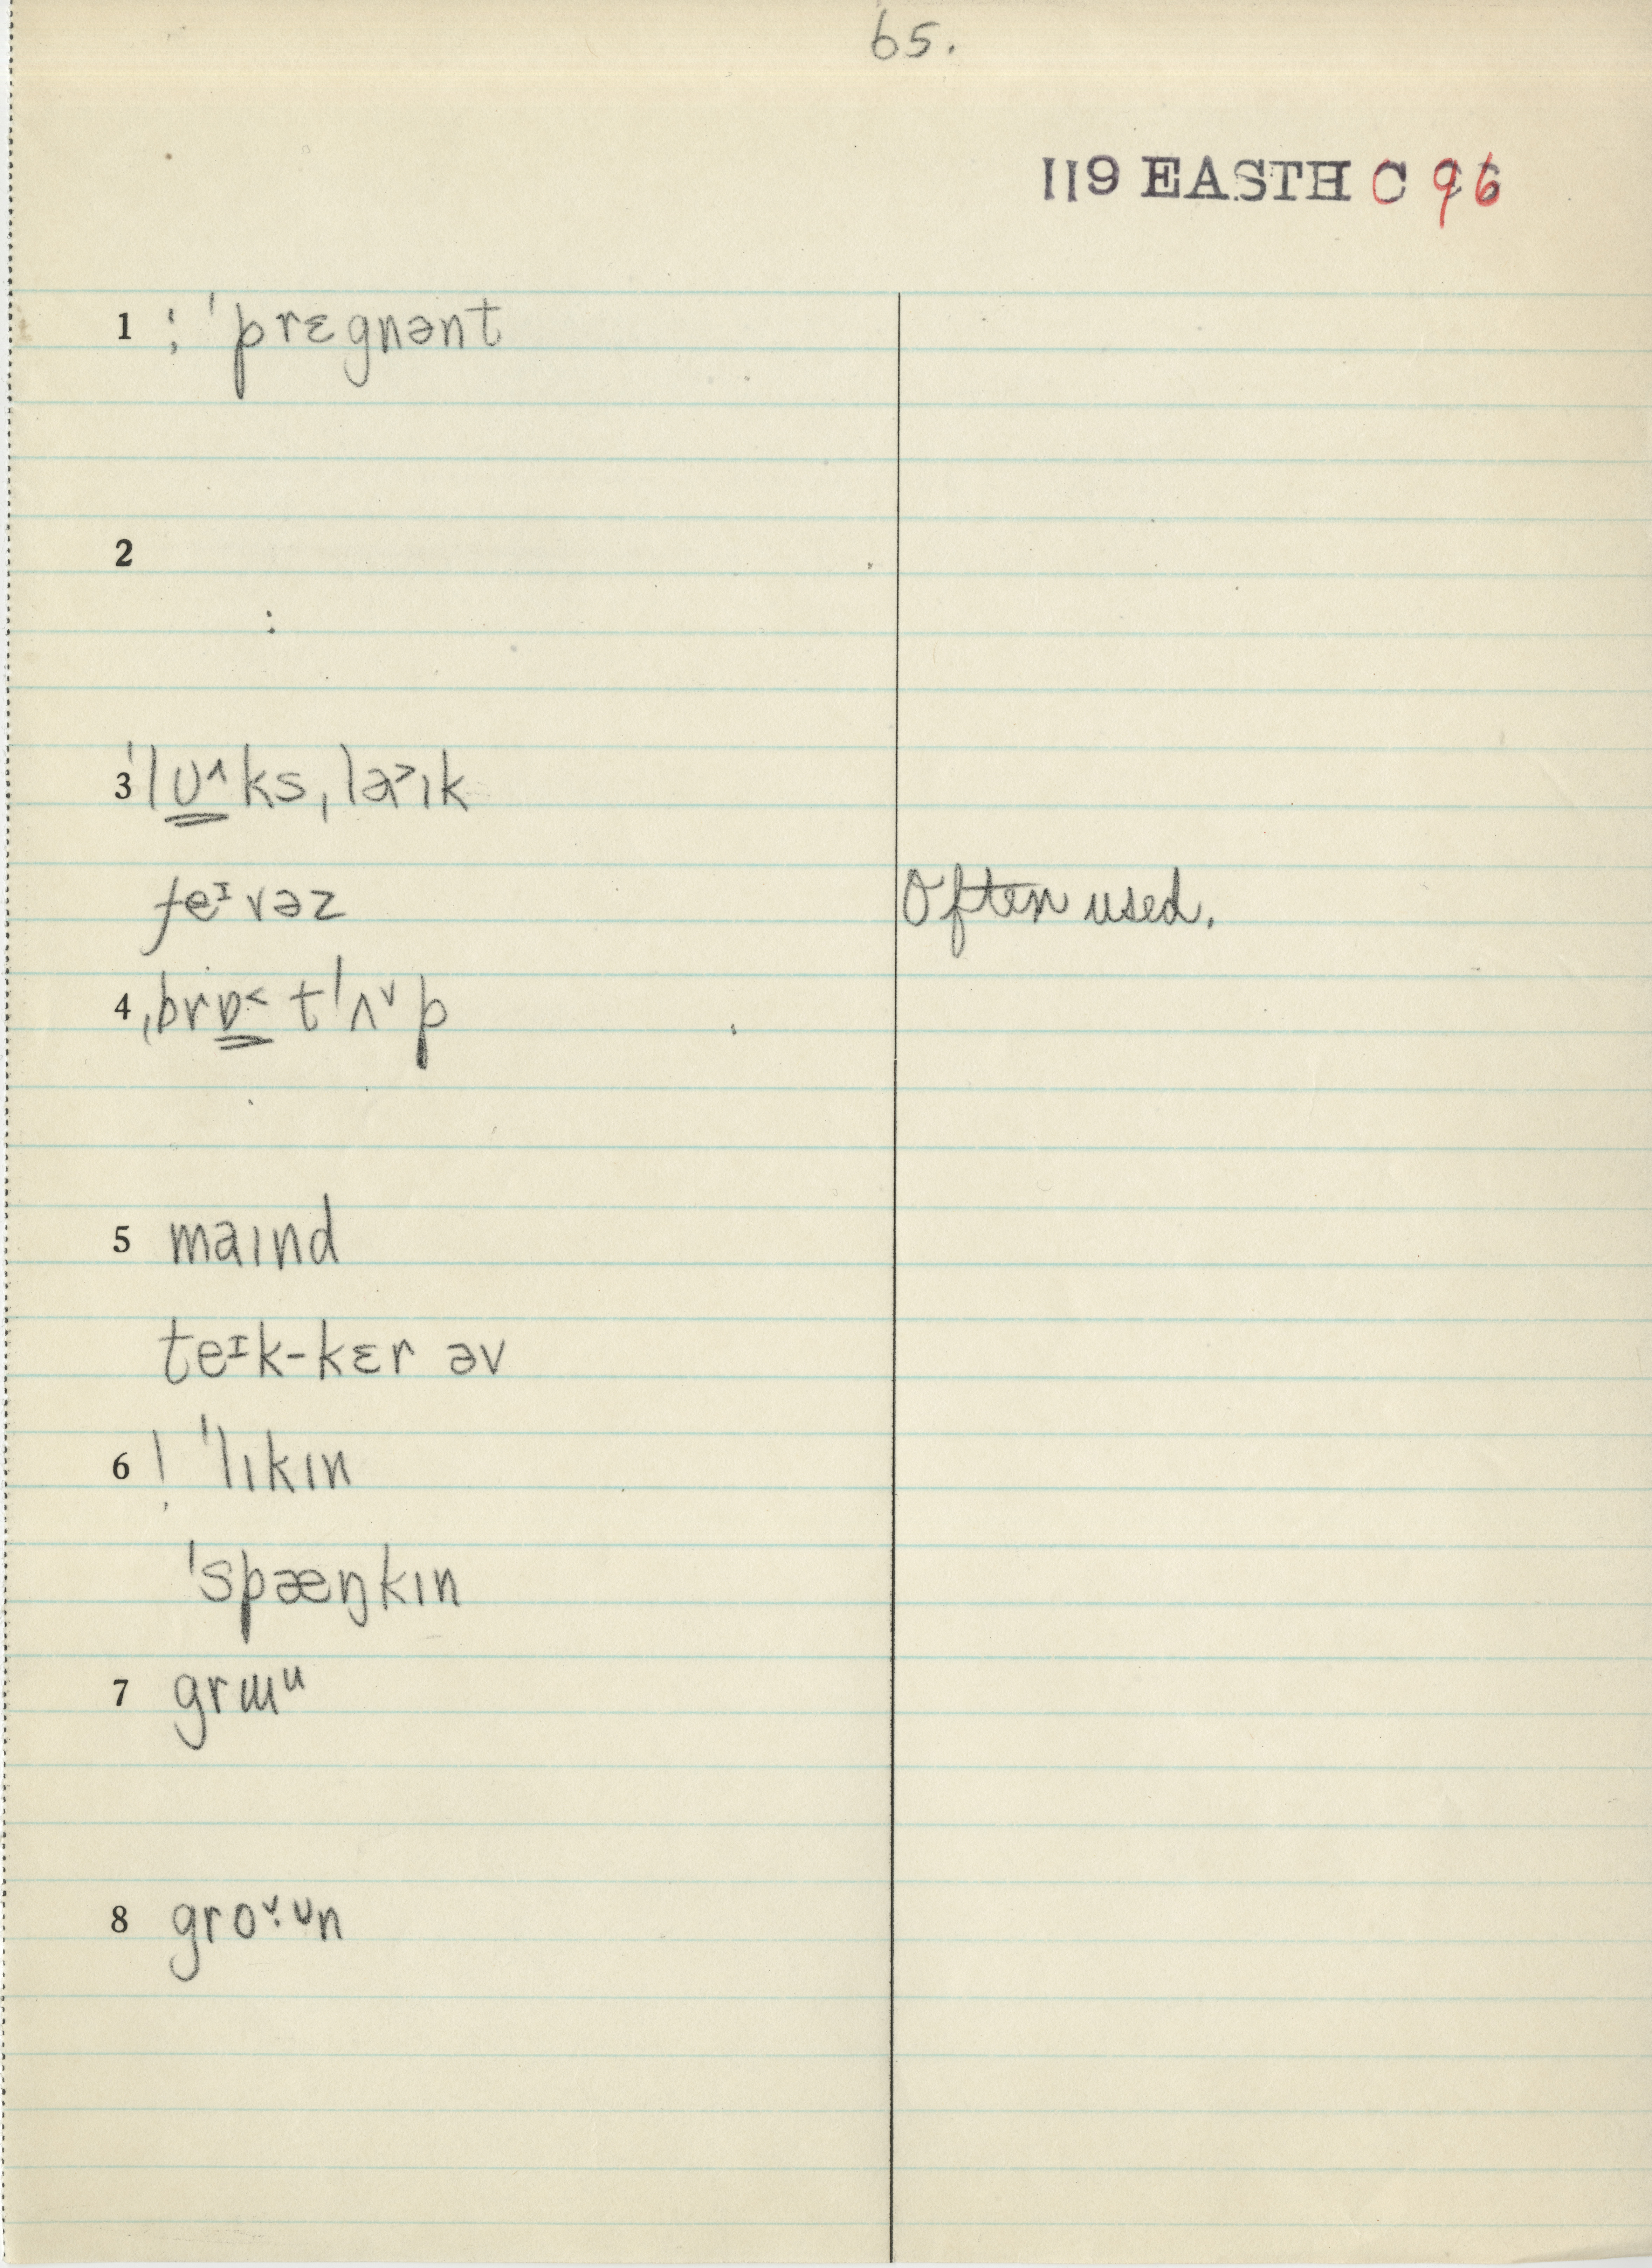 65.
119 EASTH C 96
1 ; ˈprɛgnənt
2
:
3 ˈlʊ˄ks ˌlə˃ɪk
feᴵvəz Often used.
4 ˌbrɒ˂tˈʌ˅p
5 maɪnd
teᴵk-kɛr əv
6 ! ˈlɪkɪn
ˈspæŋkɪn
7 grɯᵘ
8 gro˅·ᶸn